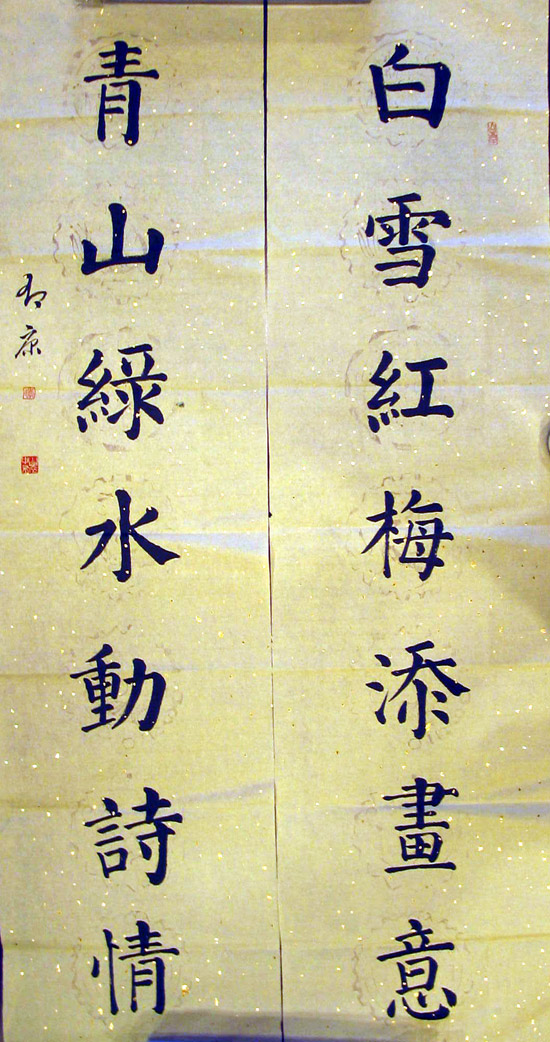 白雪紅梅添畫意
青山綠水動詩情